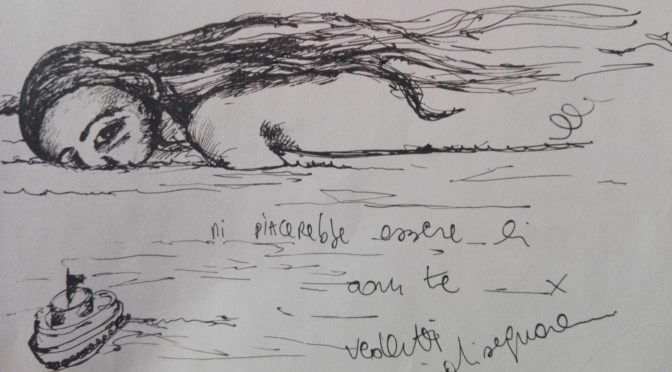 mi piacerebbe essere lì
con te __ x
vederti disegnare